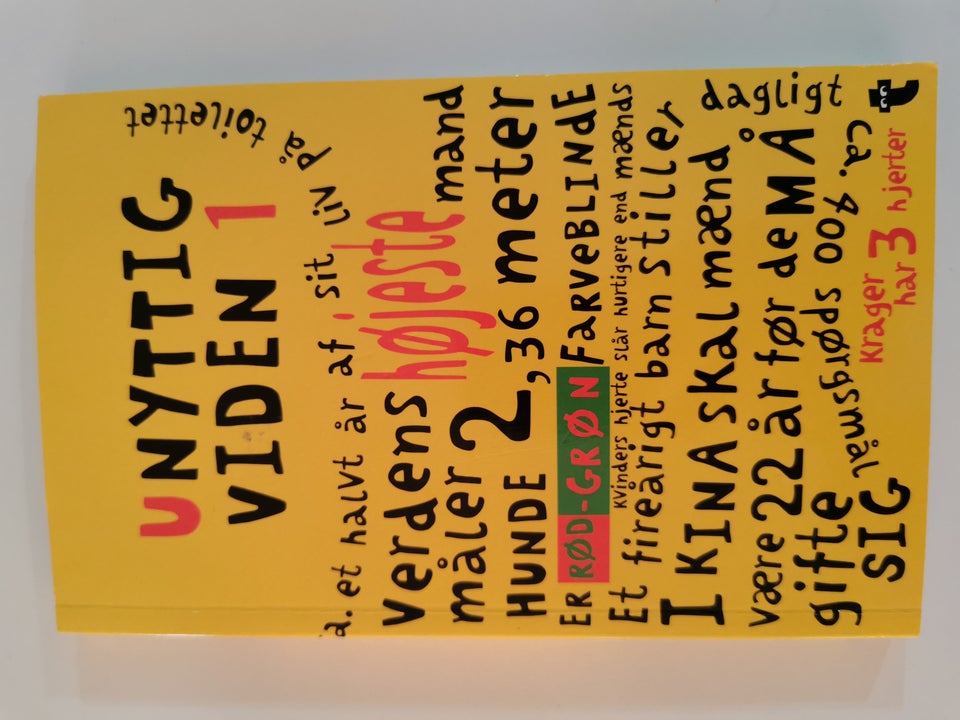 UNYTTIG
VIDEN 1
a. et halvt år af sit liv på toilettet
Verdens højeste mand
måler 2,36 meter
HUNDE
ER RØD-GRØN FARVEBLINDE
Kvinders hjerte slår hurtigere end mænds
Et fireårigt barn stiller
ca. 400 spørgsmål
dagligt
I KINA SKAL mænd
være 22 år før de MÅ
gifte
SIG
Krager
har 3 hjerter
t